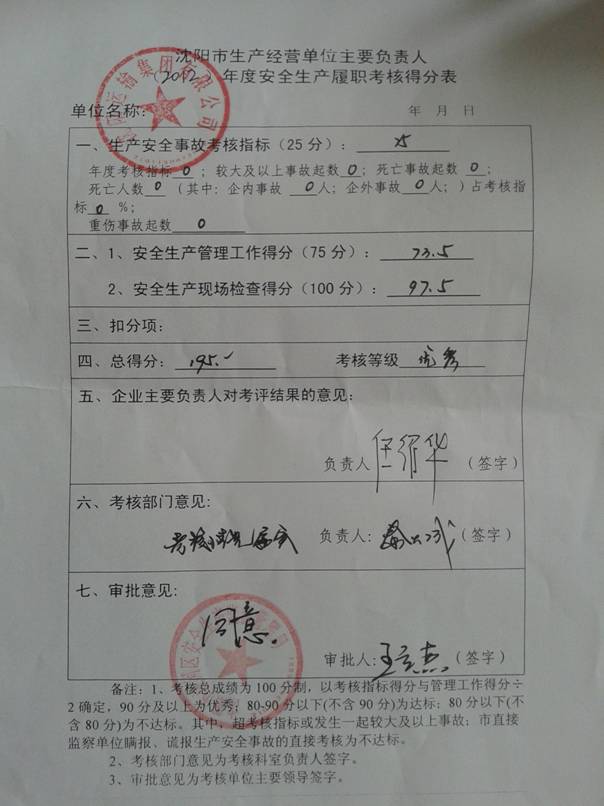 沈阳市生产经营单位主要负责人
(2012 年度安全生产履职考核得分表
单位名称: 年 月 日
集团有限公司
一、生产安全事故考核指标（25 分）: 25
年度考核指标 0 ；较大及以上事故起数 0；死亡事故起数 0；
死亡人数 0 （其中：企内事故 0人；企外事故 0人；）占考核指
标 0 %；
重伤事故起数 0
二、1、安全生产管理工作得分（75 分）: 73.5
2、安全生产现场检查得分（100 分）: 97.5
三、扣分项:
四、总得分: 195. 考核等级 优秀
五、企业主要负责人对考评结果的意见:
负责人 （签字）
六、考核部门意见:
考核 负责人: （签字）
七、审批意见:
同意.
审批人: （签字）
备注: 1、考核总成绩为 100 分制，以考核指标得分与管理工作得分÷
2 确定，90 分及以上为优秀；80-90 分以下(不含 90 分)为达标；80 分以下(不
含 80 分)为不达标。其中，超考核指标或发生一起较大及以上事故；市直接
监察单位瞒报、谎报生产安全事故的直接考核为不达标。
2、考核部门意见为考核科室负责人签字。
3、审批意见为考核单位主要领导签字。